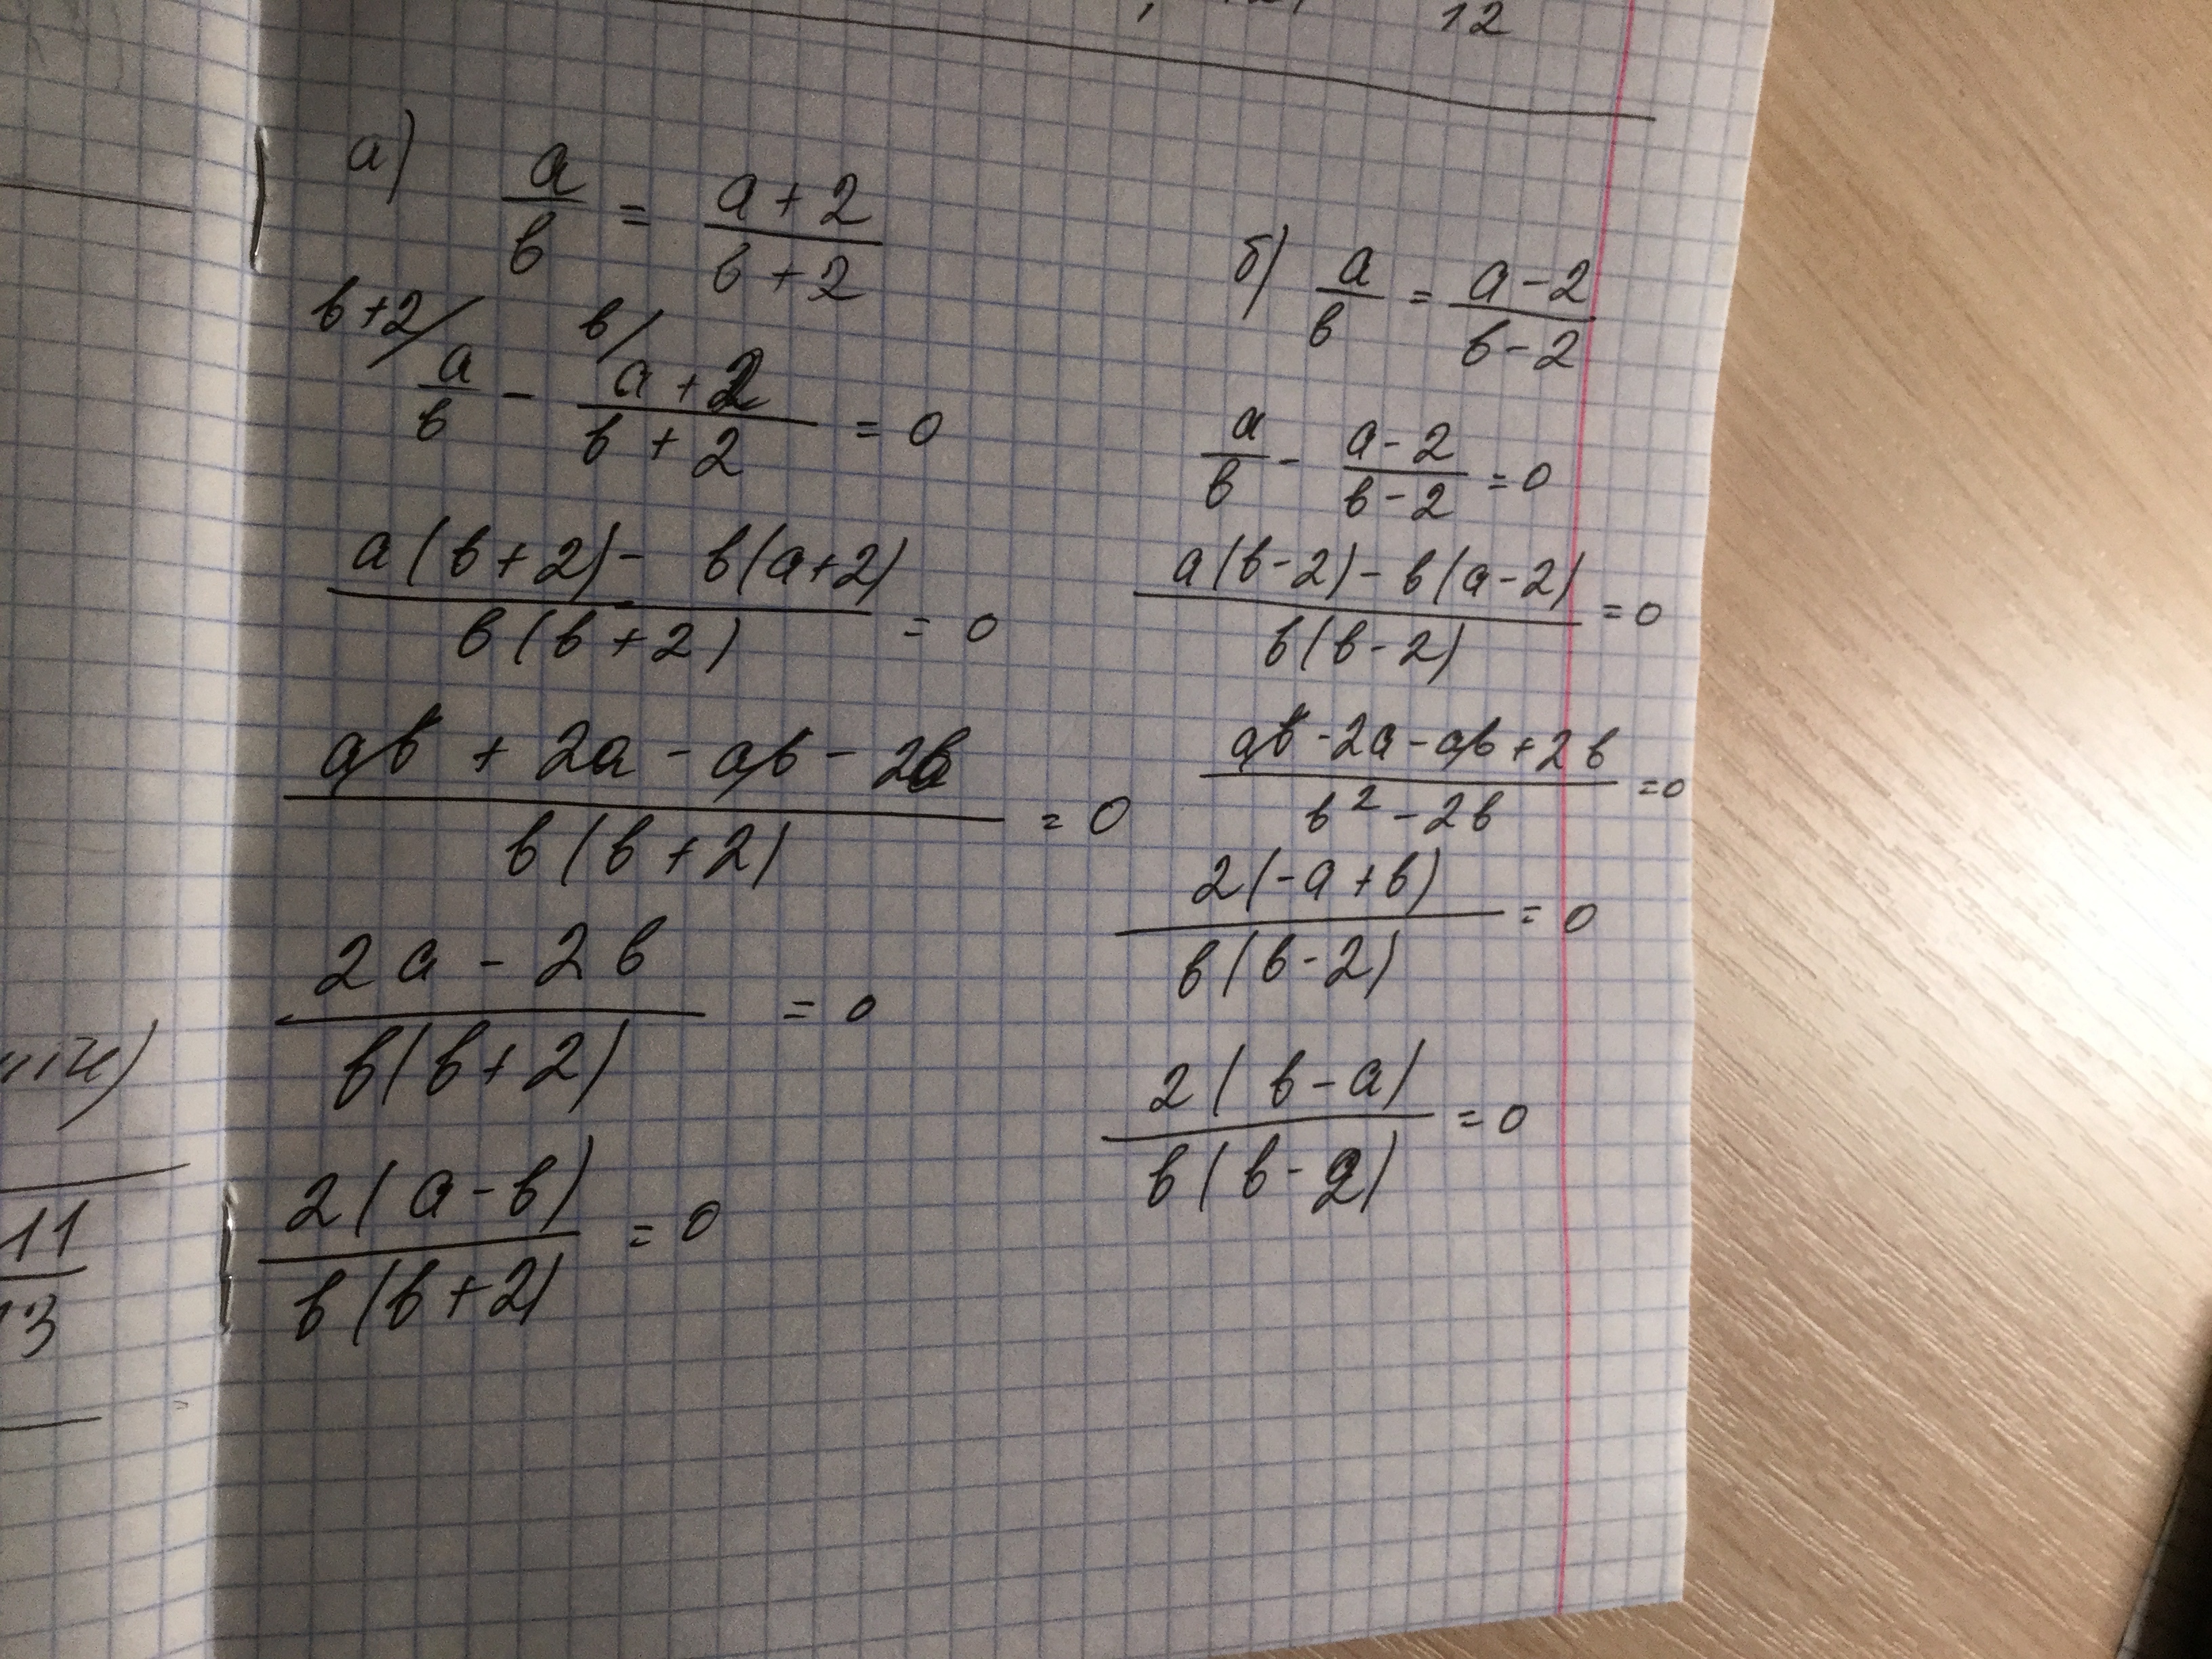 12
а)
a/b = (a + 2)/(b + 2)
b+2/ b/
a/b - (a + 2)/(b + 2) = 0
(a(b+2) - b(a+2))/(b(b+2)) = 0
(ab + 2a - ab - 2b)/(b(b+2)) = 0
(2a - 2b)/(b(b+2)) = 0
(2(a-b))/(b(b+2)) = 0
б) a/b = (a-2)/(b-2)
a/b - (a-2)/(b-2) = 0
(a(b-2) - b(a-2))/(b(b-2)) = 0
(ab - 2a - ab + 2b)/(b² - 2b) = 0
(2(-a+b))/(b(b-2)) = 0
(2(b-a))/(b(b-2)) = 0
11
13